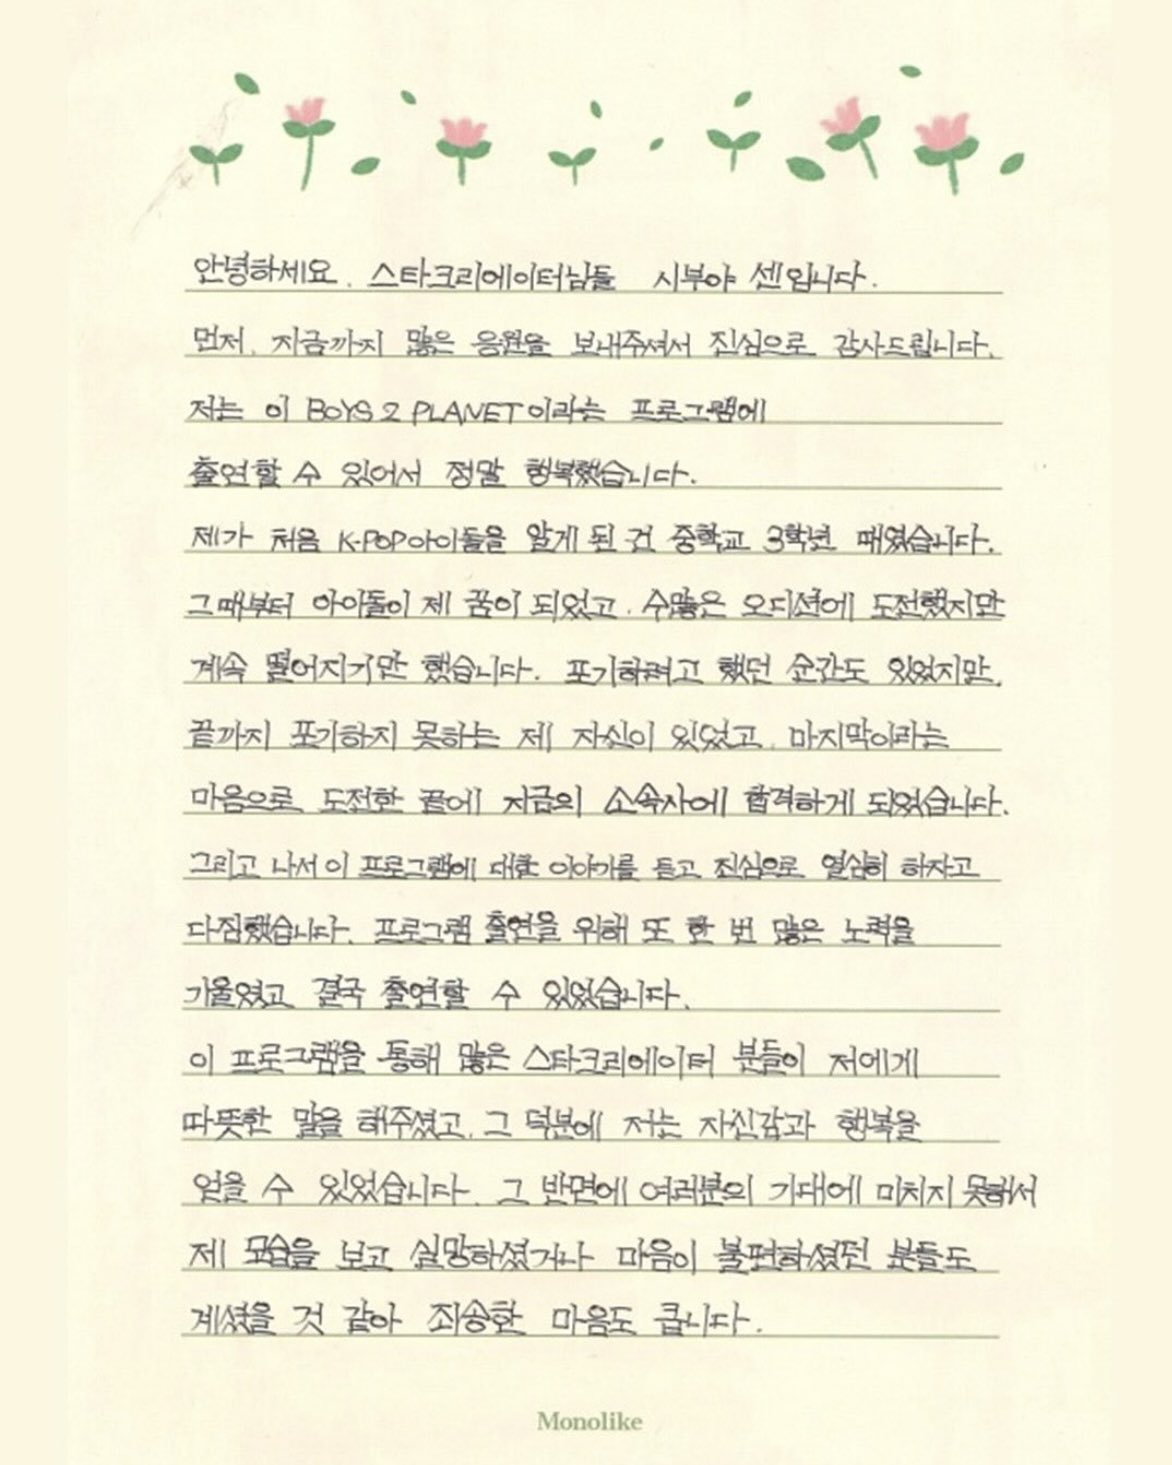 안녕하세요. 스타크리에이터님들 시부야 센입니다.
먼저, 지금까지 많은 응원을 보내주셔서 진심으로 감사드립니다.
저는 이 BOYS 2 PLANET이라는 프로그램에
출연할 수 있어서 정말 행복했습니다.
제가 처음 K-POP아이돌을 알게 된 건 중학교 3학년 때였습니다.
그때부터 아이돌이 제 꿈이 되었고, 수많은 오디션에 도전했지만
계속 떨어지기만 했습니다. 포기하려고 했던 순간도 있었지만,
끝까지 포기하지 못하는 제 자신이 있었고, 마지막이라는
마음으로 도전한 끝에 지금의 소속사에 합격하게 되었습니다.
그리고 나서 이 프로그램에 대한 이야기를 듣고 진심으로 열심히 하자고
다짐했습니다. 프로그램 출연을 위해 또 한 번 많은 노력을
기울였고 결국 출연할 수 있었습니다.
이 프로그램을 통해 많은 스타크리에이터 분들이 저에게
따뜻한 말을 해주셨고, 그 덕분에 저는 자신감과 행복을
얻을 수 있었습니다. 그 반면에 여러분의 기대에 미치지 못해서
제 모습을 보고 실망하셨거나 마음이 불편하셨던 분들도
계셨을 것 같아 죄송한 마음도 큽니다.
Monolike